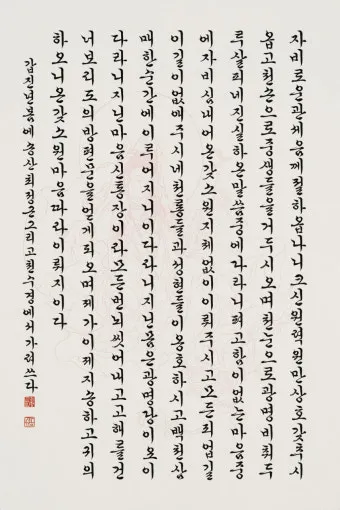 자비로운관세음께절하옵나니크신원력원만상호갖추시
옵고천손으로중생들을거두시오며천눈으로광명비춰두
루살피네진실하온말씀중에다라니펴고함이없는마음중
에자비심내어온갖소원지체없이이뤄주시고모든죄업길
이길이없애주시네천룡들과성현들이옹호하시고백천삼
매한순간에이루어지니이다라니지닌몸은광명당이오이
다라니지닌마음신통장이라모든번뇌씻어내고고해를건
너보리도의방편문을얻게되오며제가이제지송하고귀의
하오니온갖소원마음따라이뤄지이다
갑진년봄에 그리고천수경에서가려쓰다